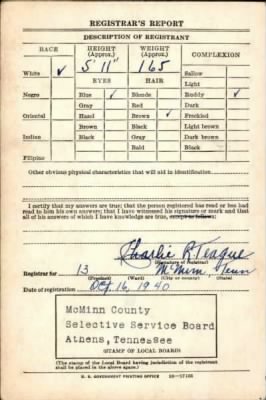 REGISTRAR'S REPORT
DESCRIPTION OF REGISTRANT
RACE HEIGHT (Approx.) WEIGHT (Approx.) COMPLEXION
White ✓ 5' 11" 165 Sallow
Light
EYES HAIR
Negro Blue ✓ Blonde Ruddy ✓
Gray Red Dark
Oriental Hazel Brown ✓ Freckled
Brown Black Light brown
Indian Black Gray Dark brown
Bald Black
Filipino
Other obvious physical characteristics that will aid in identification
I certify that my answers are true; that the person registered has read or has had
read to him his own answers; that I have witnessed his signature or mark and that
all of his answers of which I have knowledge are true, except as follows:
Charlie R. Teague
(Signature of registrar)
Registrar for 13 McMinn, Tenn
(Precinct) (Ward) (City or county) (State)
Date of registration Oct, 16, 1940
McMinn County
Selective Service Board
Athens, Tennessee
(STAMP OF LOCAL BOARD)
(The stamp of the Local Board having jurisdiction of the registrant
shall be placed in the above space.)
U. S. GOVERNMENT PRINTING OFFICE 16—17105